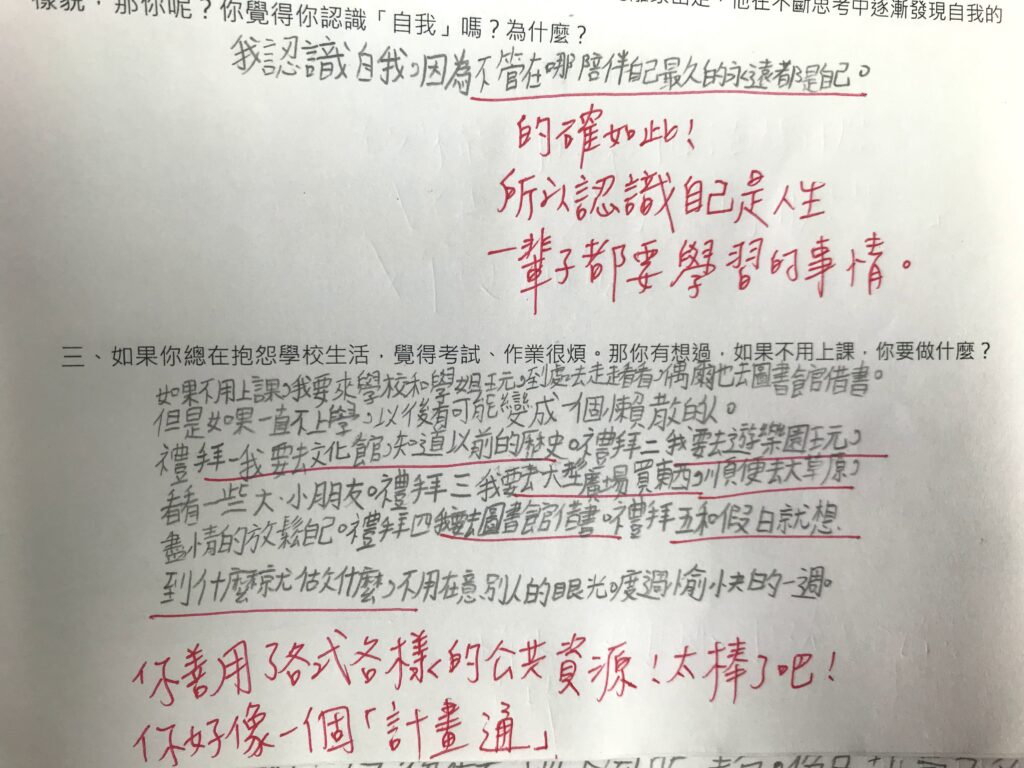 樣貌，那你呢？你覺得你認識「自我」嗎？為什麼？
他在不斷思考中逐漸發現自我的
我認識自我，因為不管在哪陪伴自己最久的永遠都是自己。
的確如此！
所以認識自己是人生
一輩子都要學習的事情。
三、如果你總在抱怨學校生活，覺得考試、作業很煩。那你有想過，如果不用上課，你要做什麼？
如果不用上課，我要來學校和學姐玩，到處去走走看看，偶爾也去圖書館借書。
但是如果一直不上學，以後有可能變成一個懶散的人。
禮拜一我要去文化館，知道以前的歷史。禮拜二我要去遊樂園玩，
看看一些大、小朋友。禮拜三我要去大型廣場買東西，順便去大草原，
盡情的放鬆自己。禮拜四我要去圖書館借書。禮拜五和假日就想
到什麼就做什麼，不用在意別人的眼光。度過愉快的一週。
你善用了各式各樣的公共資源！太棒了吧！
你好像一個「計畫通」